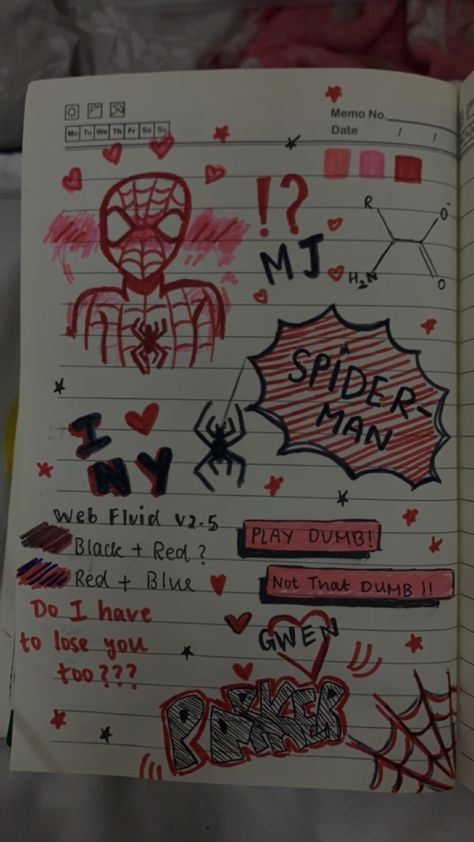 Memo No.
Mo Tu We Th Fr Sa Su
Date / /
!?
MJ
R
O-
H₂N
O
SPiDER-
MAN
I ♥
NY
Web Fluid v2.5
Black + Red?
Red + Blue
PLAY DUMB!
Not That DUMB!!
Do I have
to lose you
too???
GWEN
PARKER